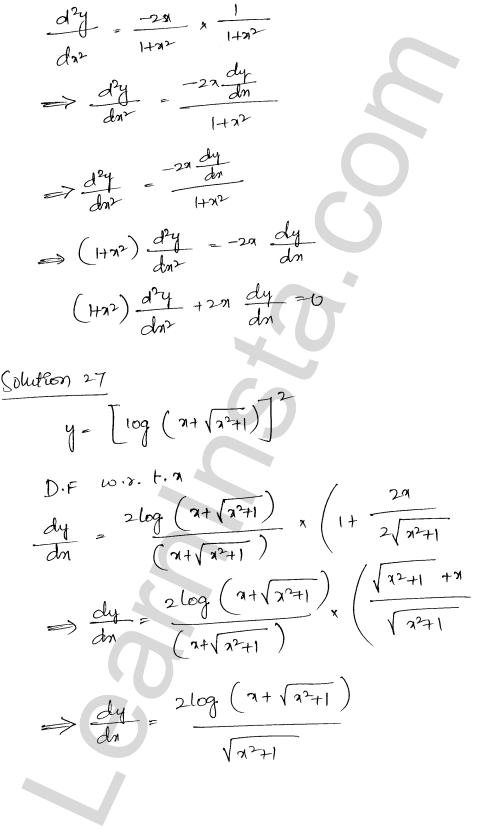 d²y/dx² = -2x/1+x² × 1/1+x²
⇒ d²y/dx² = -2x dy/dx / 1+x²
⇒ d²y/dx² = -2x dy/dx / 1+x²
⇒ (1+x²) d²y/dx² = -2x dy/dx
(1+x²) d²y/dx² + 2x dy/dx = 0
Solution 27
y = [log (x+√x²+1)]²
D.F w.r.t.x
dy/dx = 2log (x+√x²+1) / (x+√x²+1) × (1 + 2x / 2√x²+1
⇒ dy/dx = 2log (x+√x²+1) / (x+√x²+1) × (√x²+1 +x / √x²+1
⇒ dy/dx = 2log (x+√x²+1) / √x²+1
LearnInsta.com